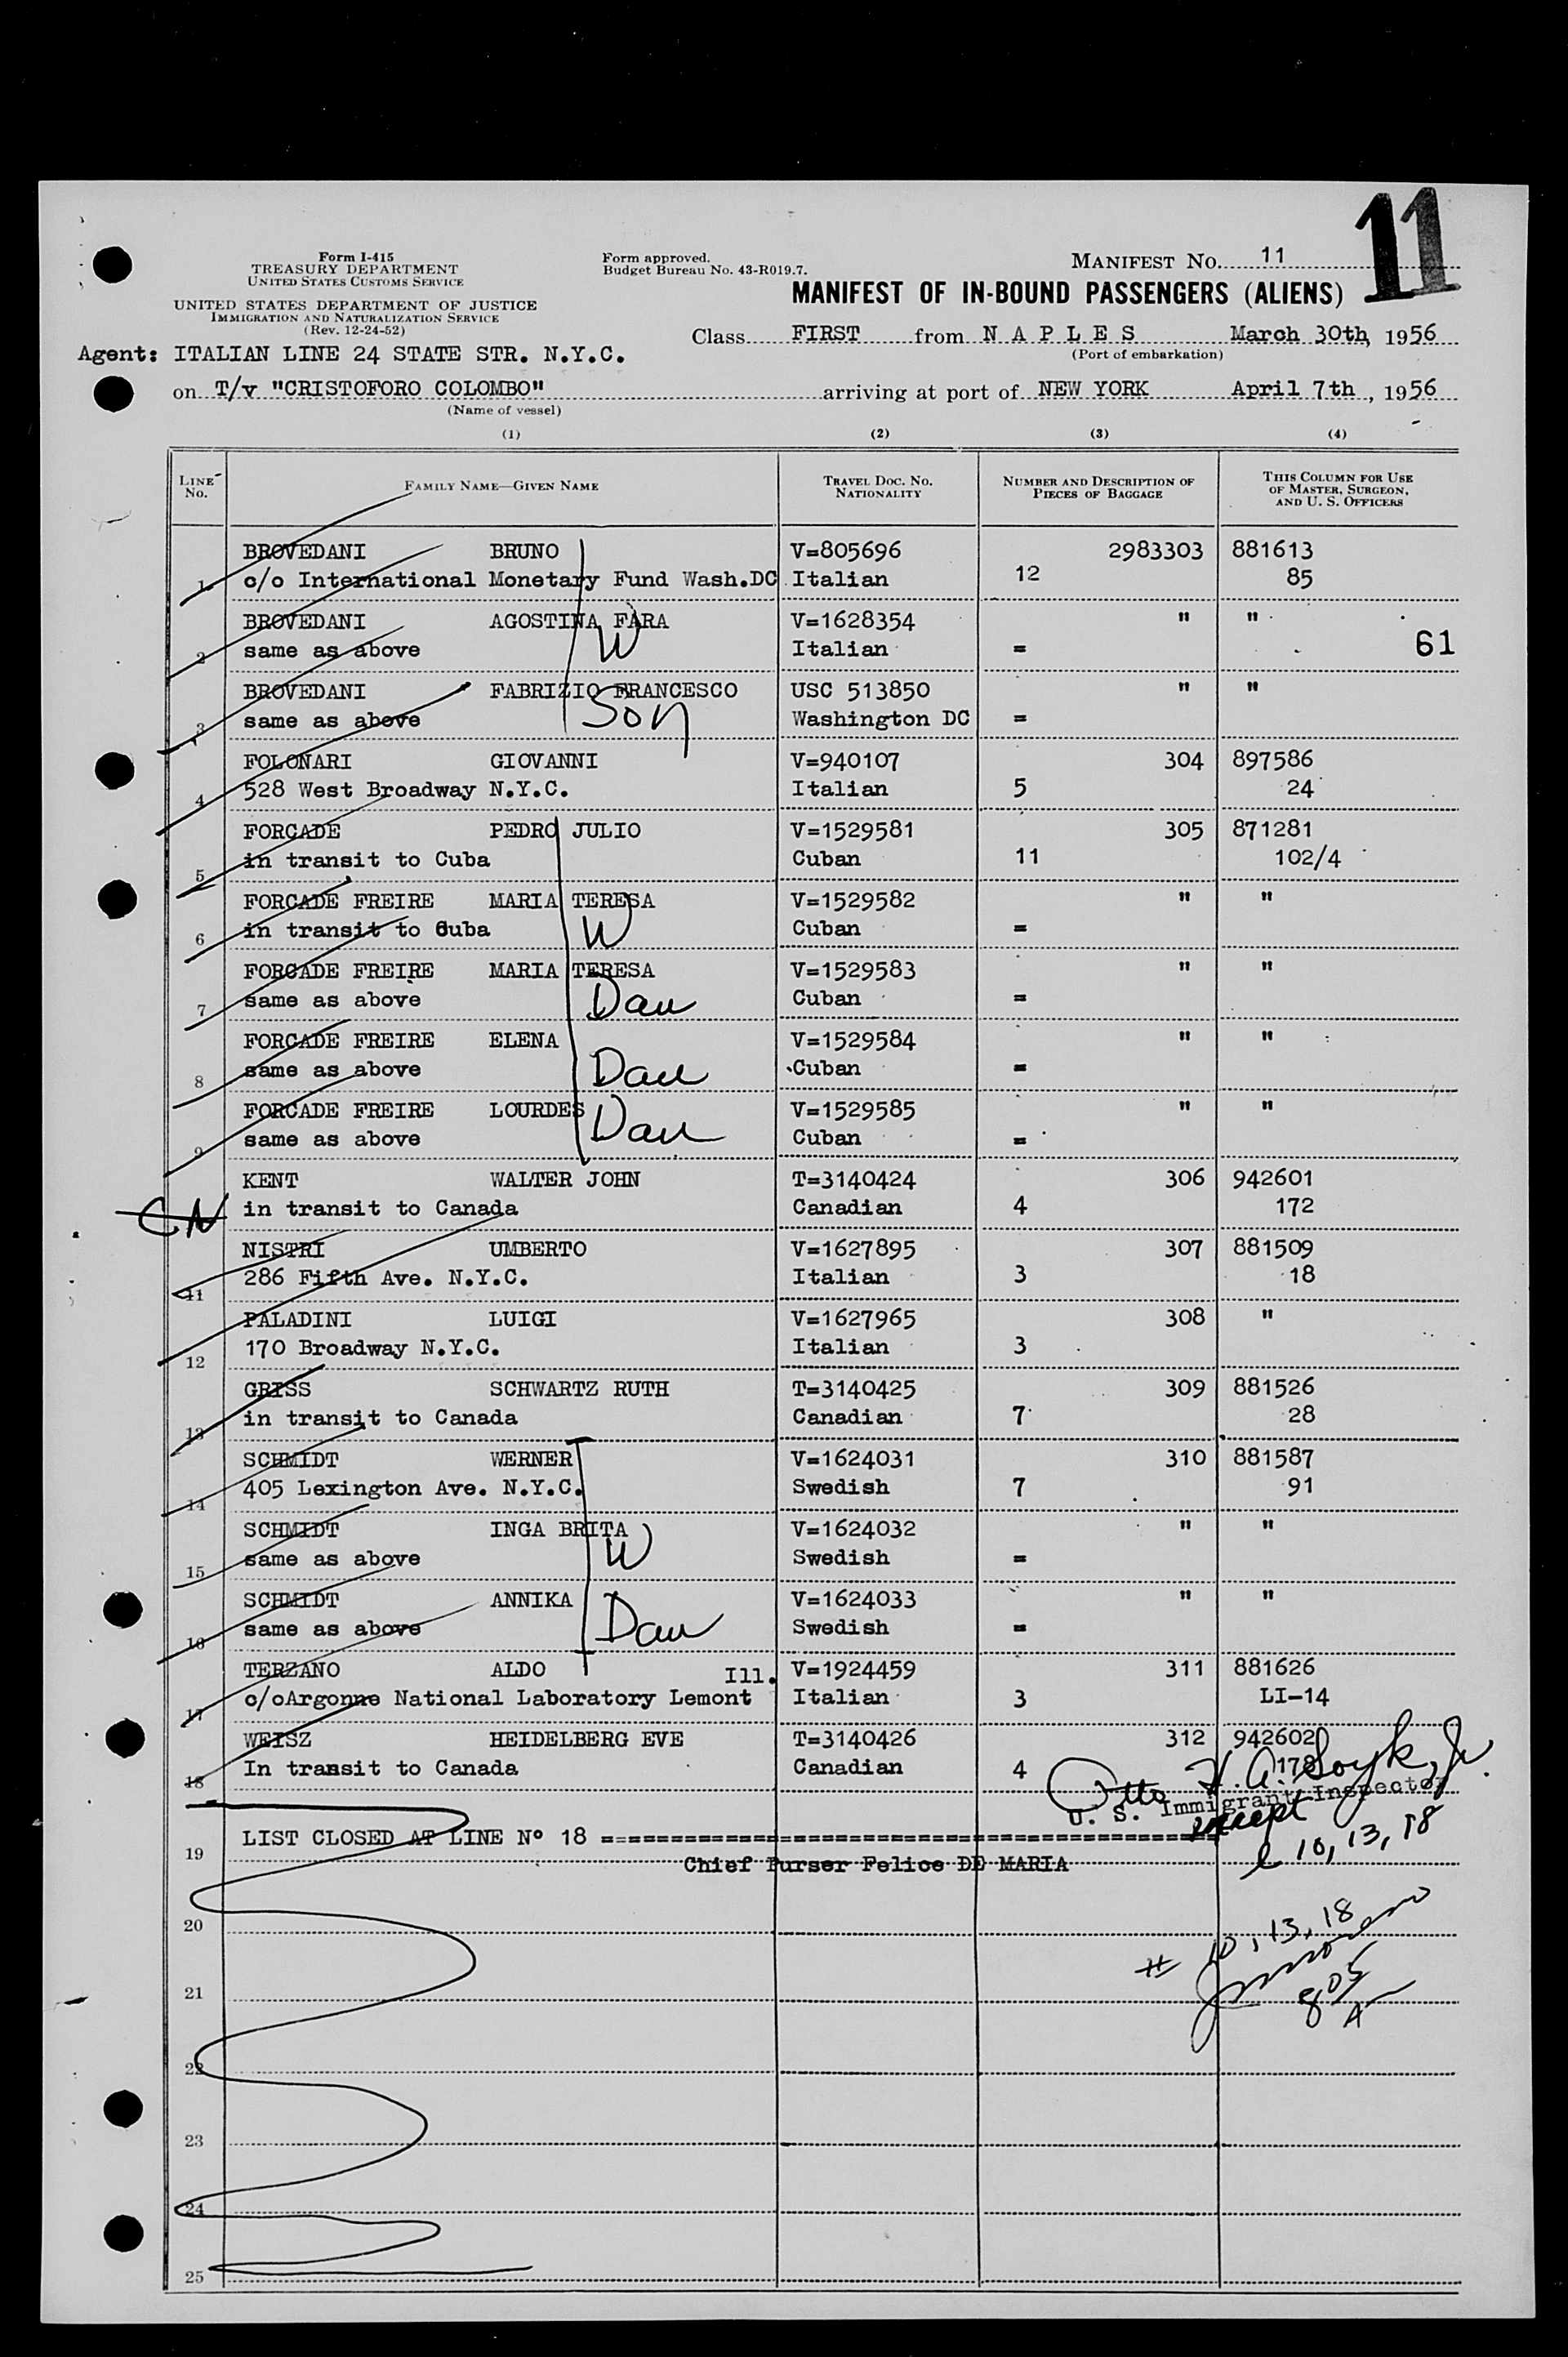 11
Form I-415
TREASURY DEPARTMENT
UNITED STATES CUSTOMS SERVICE
UNITED STATES DEPARTMENT OF JUSTICE
IMMIGRATION AND NATURALIZATION SERVICE
(Rev. 12-24-52)
Form approved.
Budget Bureau No. 43-R019.7.
MANIFEST No. 11
MANIFEST OF IN-BOUND PASSENGERS (ALIENS)
Class FIRST from N A P L E S March 30th, 1956
(Port of embarkation)
Agent: ITALIAN LINE 24 STATE STR. N.Y.C.
on T/v "CRISTOFORO COLOMBO" arriving at port of NEW YORK April 7th, 1956
(Name of vessel)
(1) (2) (3) (4)
LINE No. FAMILY NAME—GIVEN NAME TRAVEL DOC. No. NATIONALITY NUMBER AND DESCRIPTION OF PIECES OF BAGGAGE THIS COLUMN FOR USE OF MASTER, SURGEON, AND U. S. OFFICERS
BROVEDANI BRUNO V=805696 2983303 881613
1 c/o International Monetary Fund Wash.DC Italian 12 85
BROVEDANI AGOSTINA FARA V=1628354 " "
2 same as above W Italian = 61
BROVEDANI FABRIZIO FRANCESCO USC 513850 " "
3 same as above Son Washington DC =
FOLONARI GIOVANNI V=940107 304 897586
4 528 West Broadway N.Y.C. Italian 5 24
FORCADE PEDRO JULIO V=1529581 305 871281
5 in transit to Cuba Cuban 11 102/4
FORCADE FREIRE MARIA TERESA V=1529582 " "
6 in transit to Cuba W Cuban =
FORCADE FREIRE MARIA TERESA V=1529583 " "
7 same as above Dau Cuban =
FORCADE FREIRE ELENA V=1529584 " "
8 same as above Dau Cuban =
FORCADE FREIRE LOURDES V=1529585 " "
9 same as above Dau Cuban =
KENT WALTER JOHN T=3140424 306 942601
CN in transit to Canada Canadian 4 172
NISTRI UMBERTO V=1627895 307 881509
11 286 Fifth Ave. N.Y.C. Italian 3 18
PALADINI LUIGI V=1627965 308 "
12 170 Broadway N.Y.C. Italian 3
GRISS SCHWARTZ RUTH T=3140425 309 881526
13 in transit to Canada Canadian 7 28
SCHMIDT WERNER V=1624031 310 881587
14 405 Lexington Ave. N.Y.C. Swedish 7 91
SCHMIDT INGA BRITA V=1624032 " "
15 same as above W Swedish =
SCHMIDT ANNIKA V=1624033 " "
16 same as above Dau Swedish =
TERZANO ALDO Ill. V=1924459 311 881626
17 c/oArgonne National Laboratory Lemont Italian 3 LI-14
WEISZ HEIDELBERG EVE T=3140426 312 942602
18 In transit to Canada Canadian 4 178
Otto H.A. Soyk, Jr.
U. S. Immigrant Inspector
except
l 10, 13, 18
LIST CLOSED AT LINE N° 18 ====================
19 Chief Purser Felice DE MARIA
20
# 10, 13, 18
21
805
A
22
23
24
25